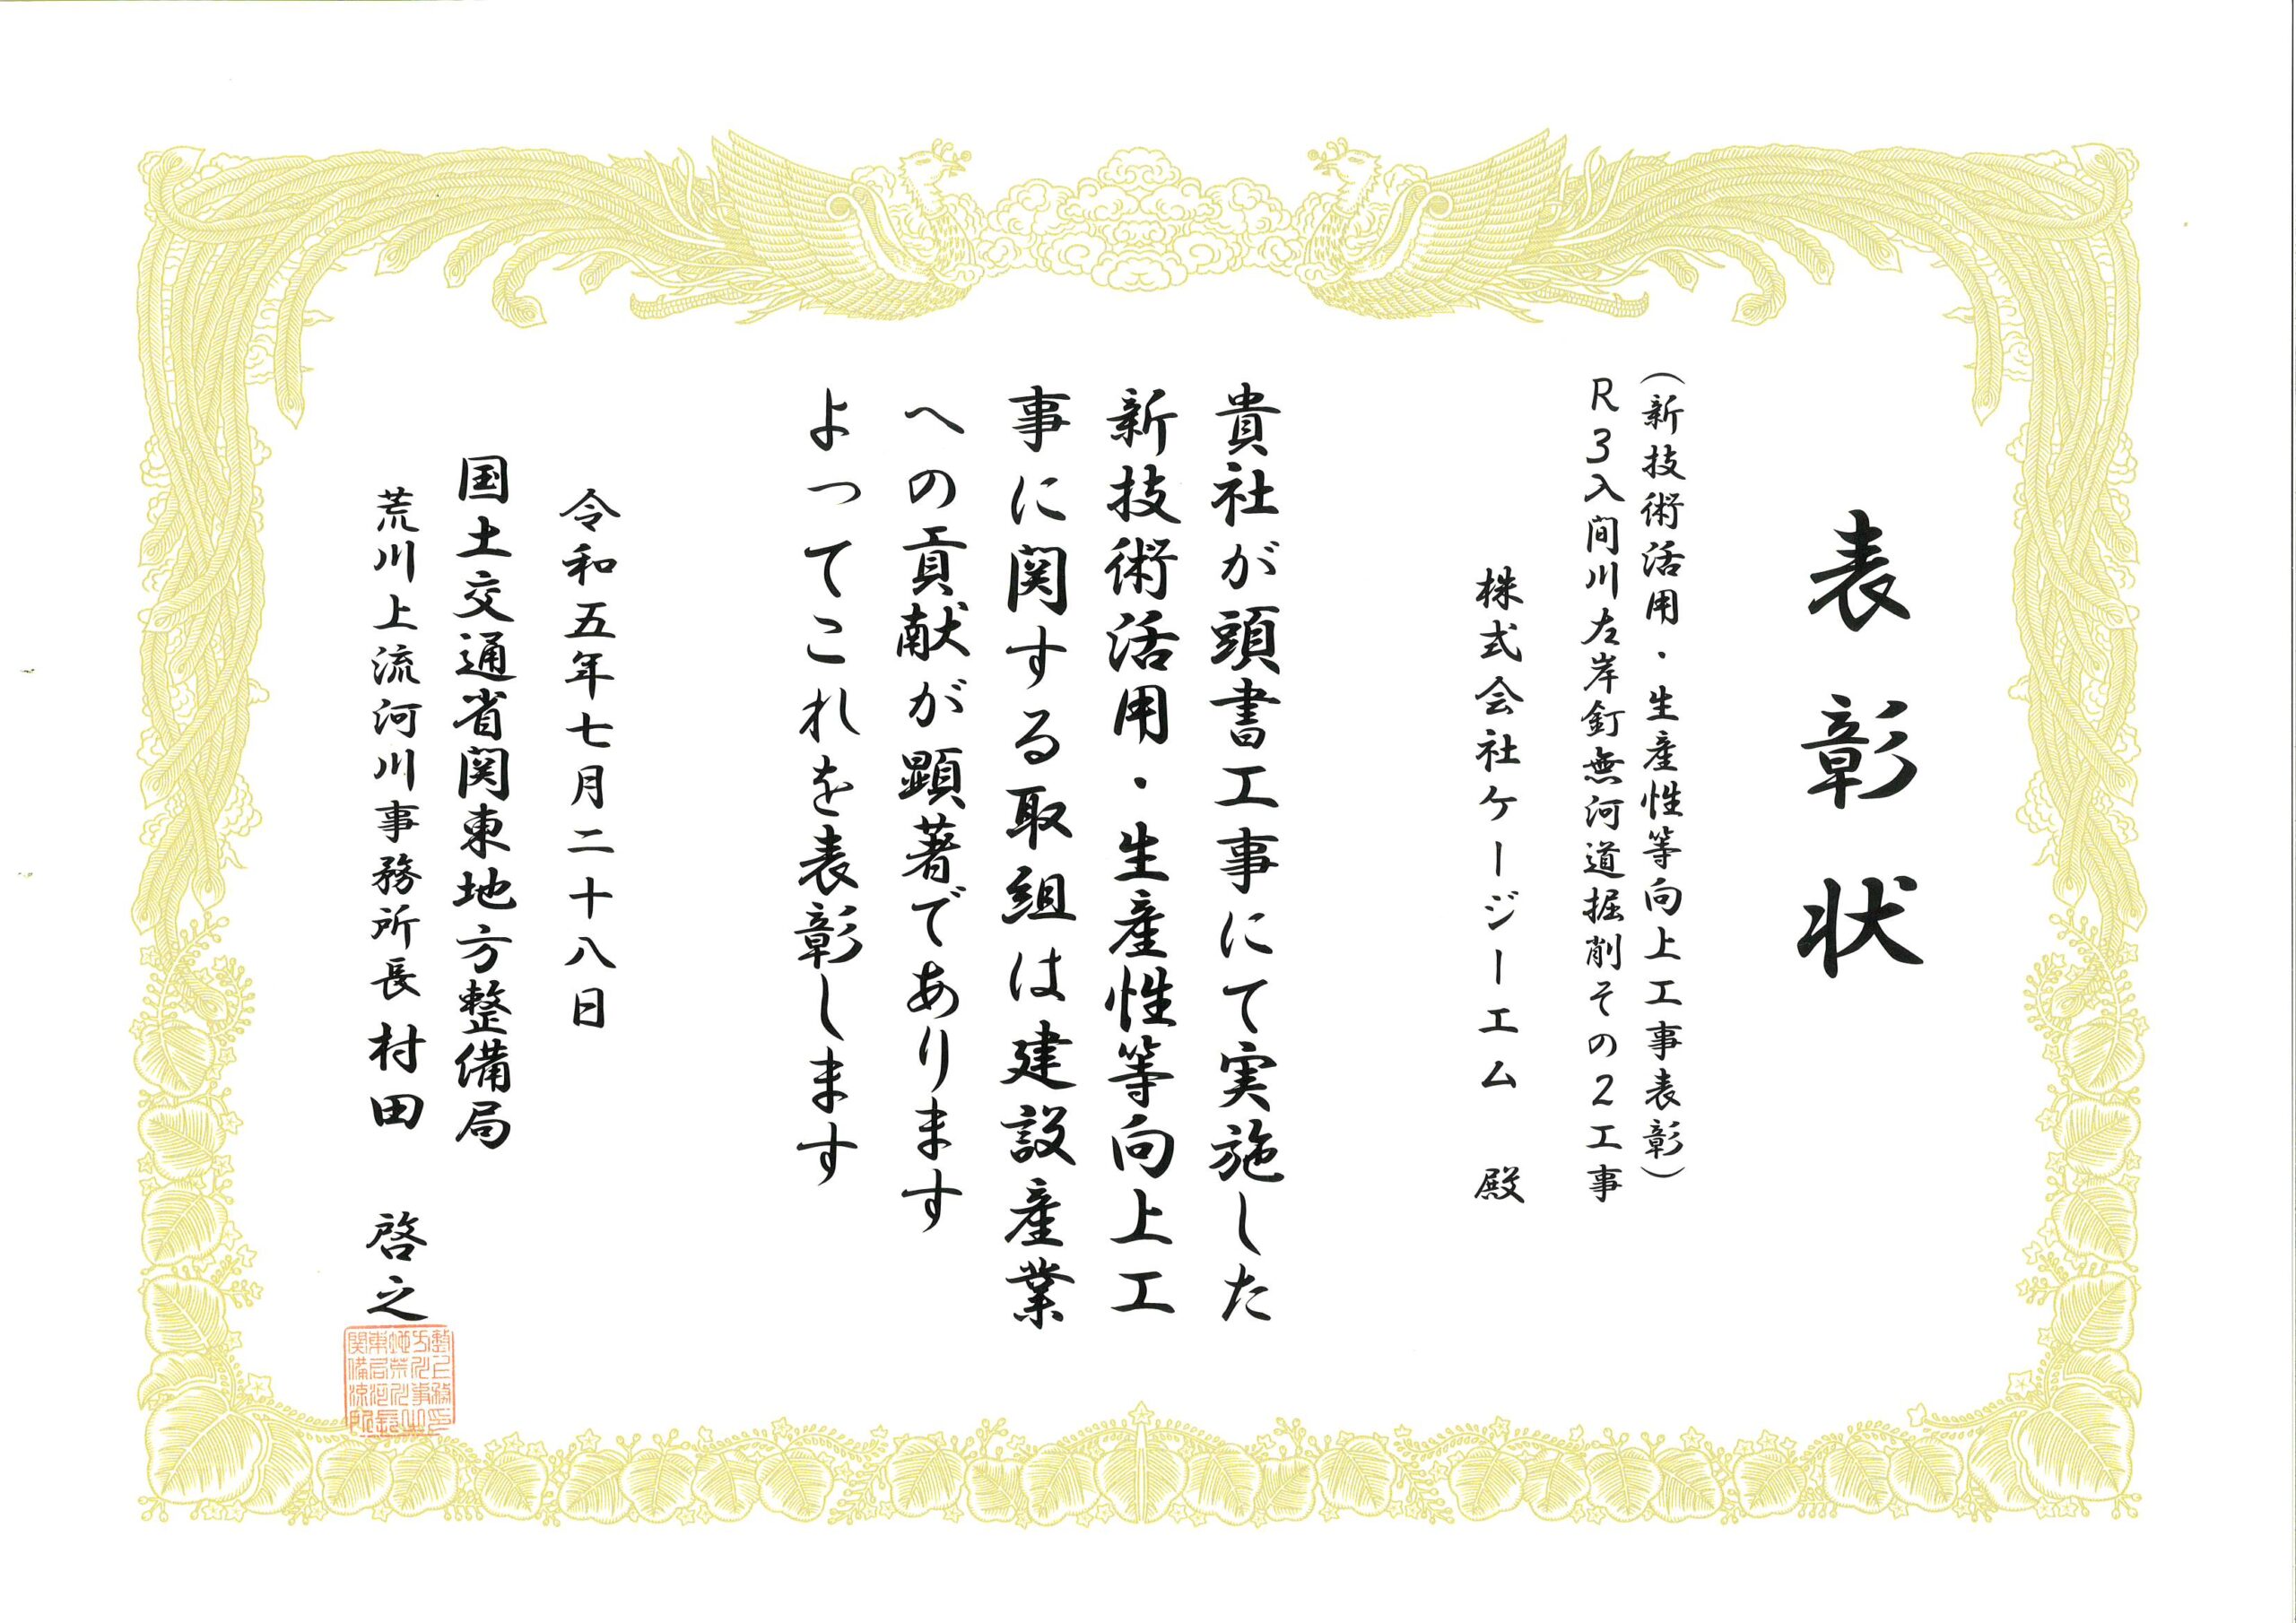 表彰状
(新技術活用・生産性等向上工事表彰)
R3入間川左岸釘無河道掘削その2工事
株式会社ケージーエム 殿
貴社が頭書工事にて実施した
新技術活用・生産性等向上工
事に関する取組は建設産業
への貢献が顕著であります
よってこれを表彰します
令和五年七月二十八日
国土交通省関東地方整備局
荒川上流河川事務所長 村田 啓之